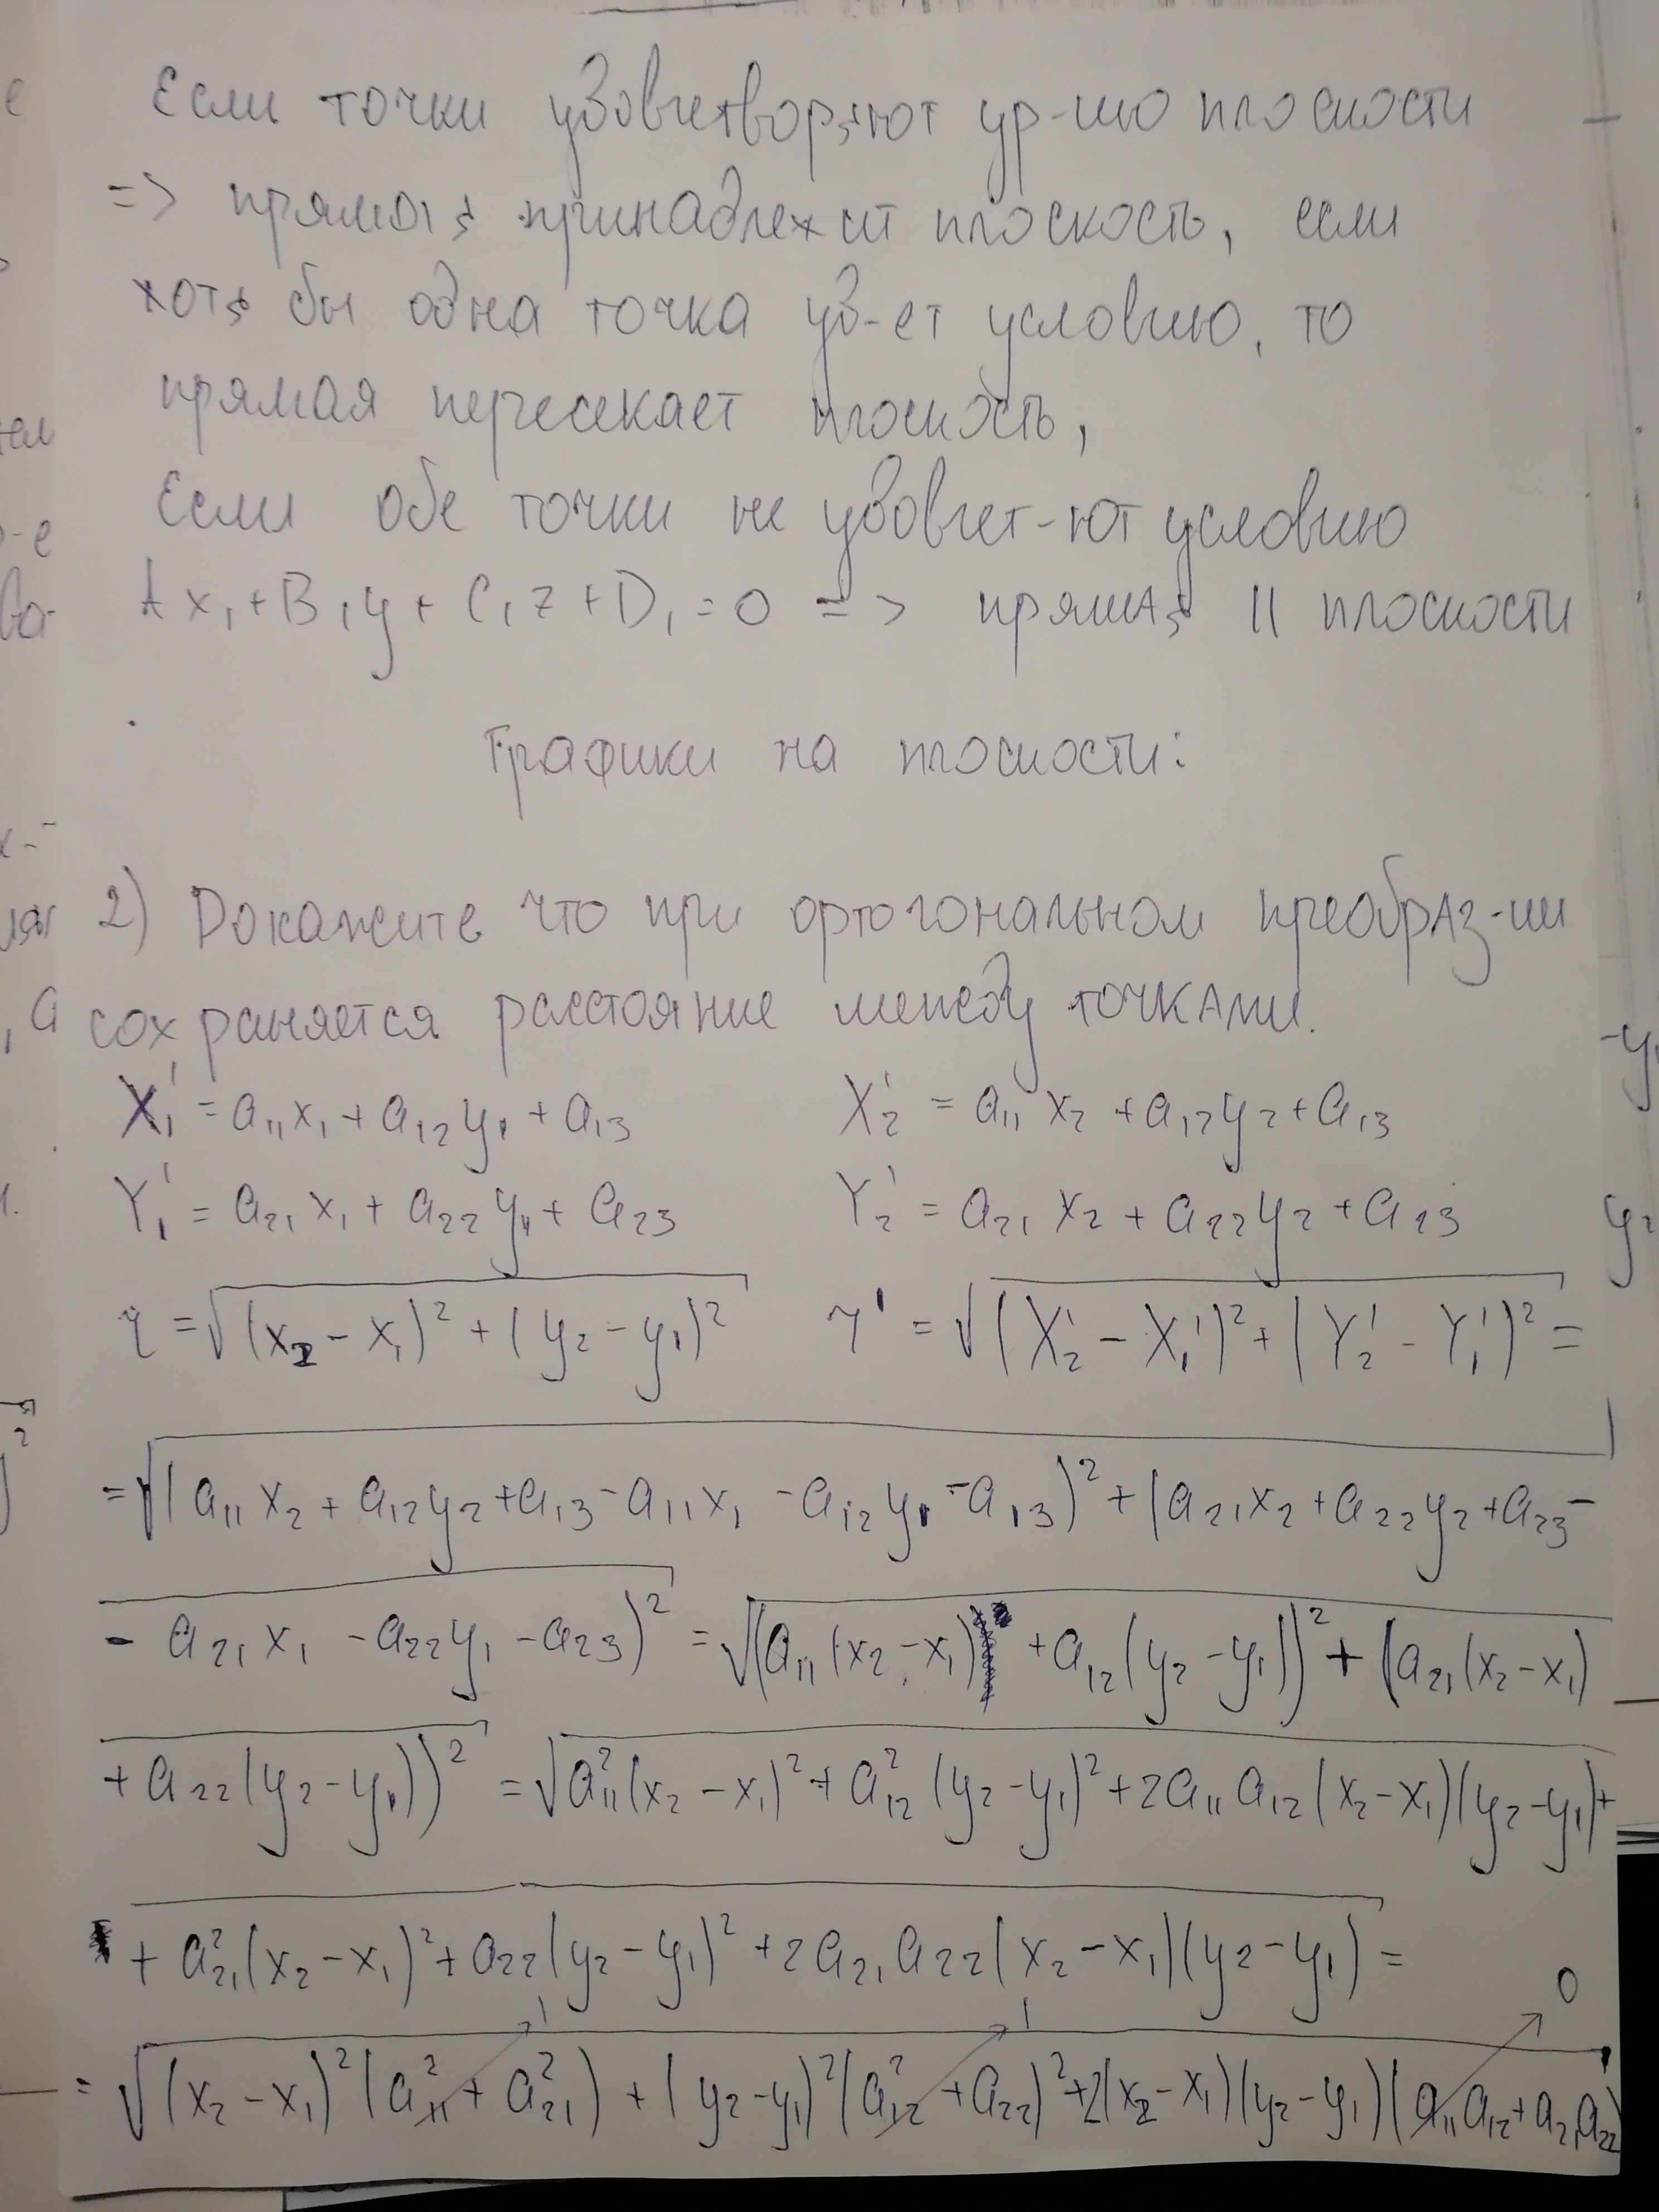 Если точки удовлетворяют ур-нию плоскости
=> прямая принадлежит плоскость, если
хотя бы одна точка уд-ет условию, то
прямая пересекает плоскость,
Если обе точки не удовлет-ют условию
Ax₁+B₁y+C₁z+D₁=0 => прямая || плоскости
Графики на плоскости:
2) Докажите что при ортогональном преобраз-ии
сохраняется расстояние между точками.
X₁' = a₁₁x₁ + a₁₂y₁ + a₁₃ X₂' = a₁₁x₂ + a₁₂y₂ + a₁₃
Y₁' = a₂₁x₁ + a₂₂y₁ + a₂₃ Y₂' = a₂₁x₂ + a₂₂y₂ + a₂₃
r = √(x₂ - x₁)² + (y₂ - y₁)² r' = √(X₂' - X₁')² + (Y₂' - Y₁')² =
= √(a₁₁x₂ + a₁₂y₂ + a₁₃ - a₁₁x₁ - a₁₂y₁ - a₁₃)² + (a₂₁x₂ + a₂₂y₂ + a₂₃ -
- a₂₁x₁ - a₂₂y₁ - a₂₃)² = √(a₁₁(x₂ - x₁) + a₁₂(y₂ - y₁))² + (a₂₁(x₂ - x₁)
+ a₂₂(y₂ - y₁))² = √a₁₁²(x₂ - x₁)² + a₁₂²(y₂ - y₁)² + 2a₁₁a₁₂(x₂ - x₁)(y₂ - y₁) +
+ a₂₁²(x₂ - x₁)² + a₂₂(y₂ - y₁)² + 2a₂₁a₂₂(x₂ - x₁)(y₂ - y₁) =
1 1 0
= √(x₂ - x₁)²(a₁₁² + a₂₁²) + (y₂ - y₁)²(a₁₂² + a₂₂)² + 2(x₂ - x₁)(y₂ - y₁)(a₁₁a₁₂ + a₂₁a₂₂)